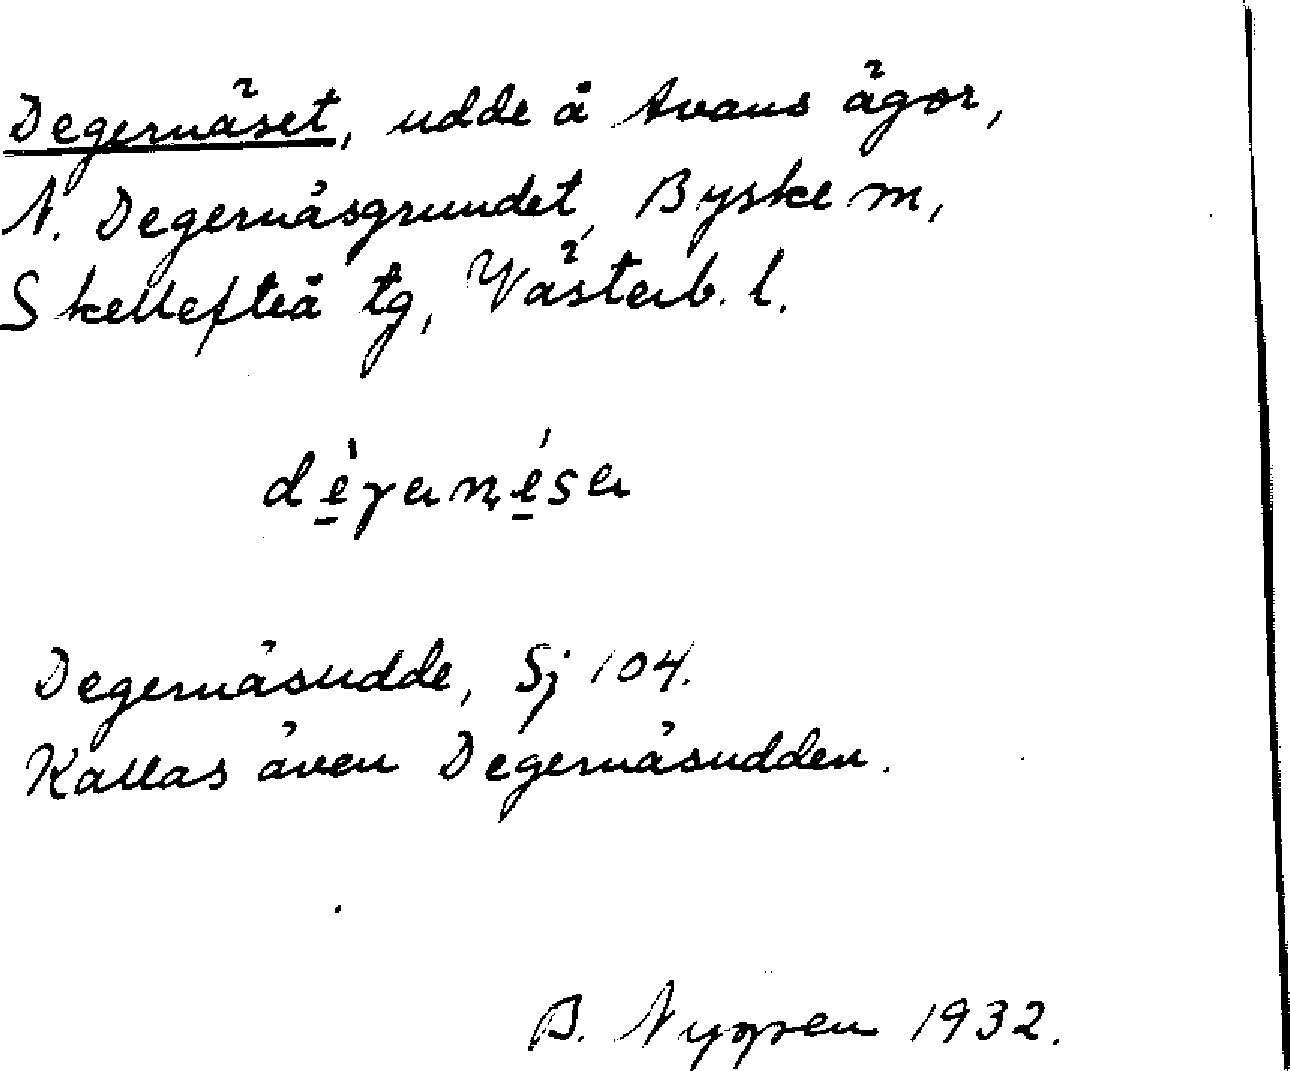 Degernäset, udde å Avans ägor,
N. Degernäsgrundet, Byske sn,
Skellefteå tg, Västerb. l.
Degernäsudde, Sj 104.
Kallas även Degernäsudden.
B. Nygren 1932.